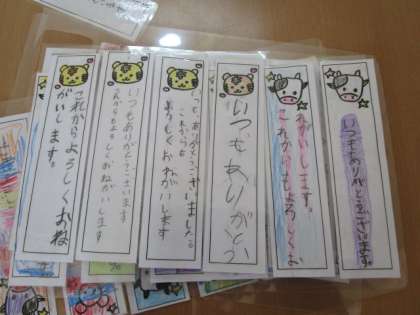 いつもありがとうございます。
これからもよろしくお
ねがいします。
いつもありがとう
いつもありがとうございました
これからも
よろしくおねがいします
いつもありがとうございます。
これからもよろしくおねがいします
これからよろしくおね
がいします。